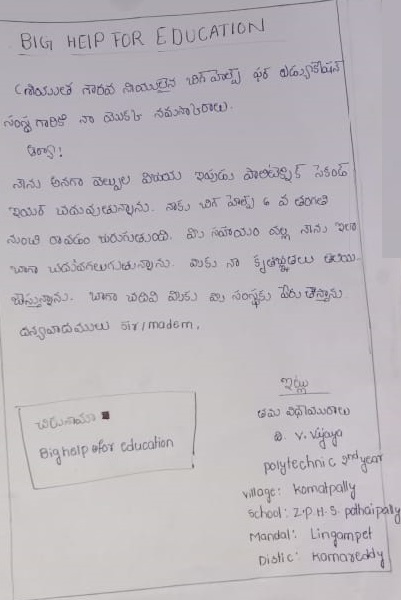 BIG HELP FOR EDUCATION
శ్రీయుత గౌరవ నీయులైన బిగ్ హెల్ప్ ఫర్ ఎడ్యుకేషన్
సంస్థ గారికి నా యొక్క నమస్కారాలు.
ఆర్యా!
నాను అనగా వెల్పుల విజయ ఇప్పుడు పాలిటెక్నిక్ సెకండ్
ఇయర్ చదువుతున్నాను. నాకు బిగ్ హెల్ప్ 6 వ తరగతి
నుంచి రావడం జరుగుతుంది. మీ సహాయం వల్ల నాను ఇలా
బాగా చదువగలుగుతున్నాను. మీకు నా కృతజ్ఞతలు తెలియ
చేస్తున్నాను. బాగా చదివి మీకు మీ సంస్థకు పేరు తెస్తాను
ధన్యవాదములు sir/madam.
ఇట్లు
తమ విధేయురాలు
V. Vijaya
polytechnic 2nd year
village: komatpally
school: Z.P.H.S. pothaipally
Mandal: Lingampet
Distic: kamareddy
చిరునామా
Big help for education